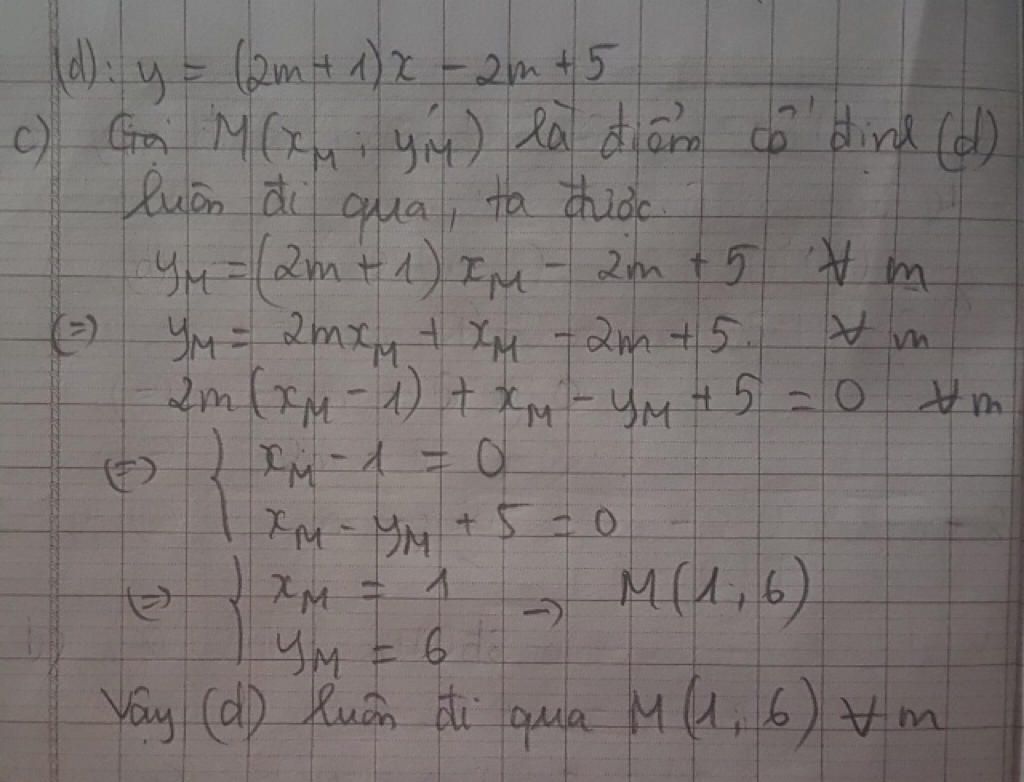 (d): y = (2m + 1)x - 2m + 5
c) Gọi M(x_M ; y_M) là điểm cố định (d)
luôn đi qua, ta được
y_M = (2m + 1) x_M - 2m + 5 ∀ m
(=) y_M = 2mx_M + x_M - 2m + 5. ∀ m
2m(x_M - 1) + x_M - y_M + 5 = 0 ∀m
(=) { x_M - 1 = 0
x_M - y_M + 5 = 0
(=) { x_M = 1 → M(1; 6)
y_M = 6
Vậy (d) luôn đi qua M(1; 6) ∀ m